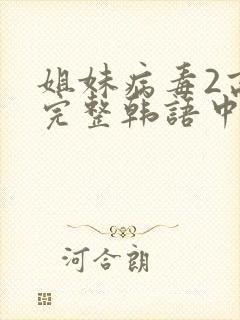 姐妹病毒2高
完整韩语中
河合朗